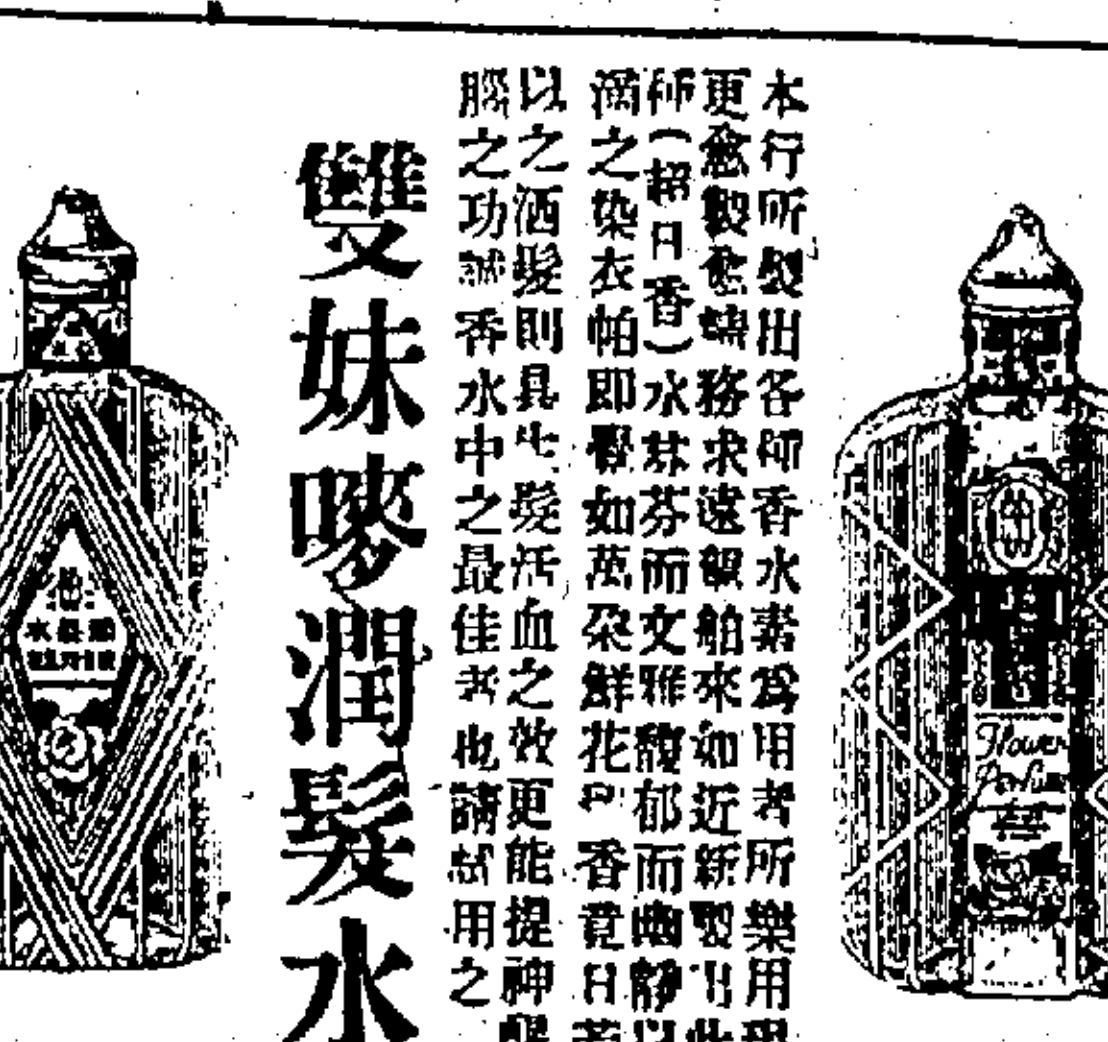 本行所製出各種香水素爲用者所樂用現
更愈製愈精務求遠駕舶來如近新製出此
種(超日香)水其芬而文雅馥郁而幽靜以
滴之染衣帕即覺如萬朶鮮花 香竟日若
以之洒髮則具生髮活血之效更能提神醒
腦之功誠香水中之最佳者也請試用之
雙妹嘜潤髮水
Flower